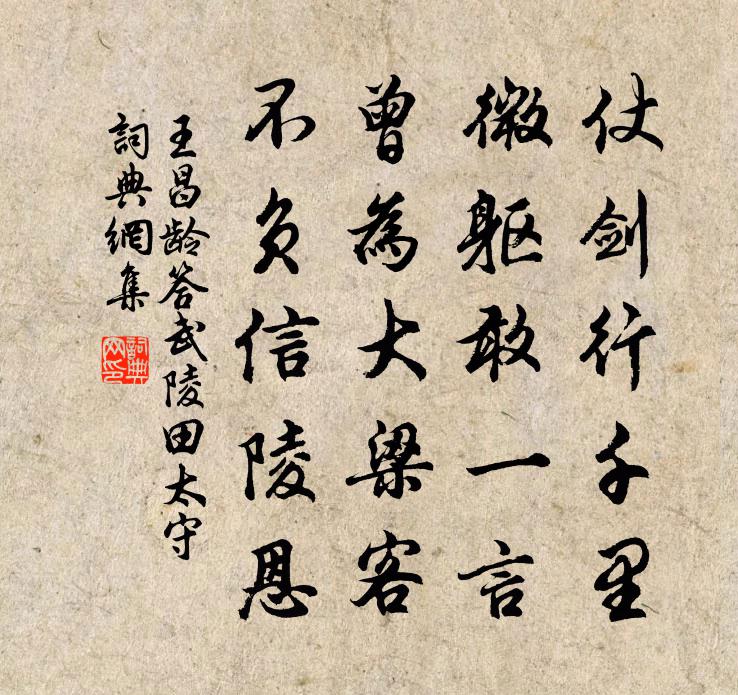 仗剑行千里
微躯敢一言
曾為大梁客
不负信陵恩
王昌龄答武陵田太守
詞典網集
詞典網印